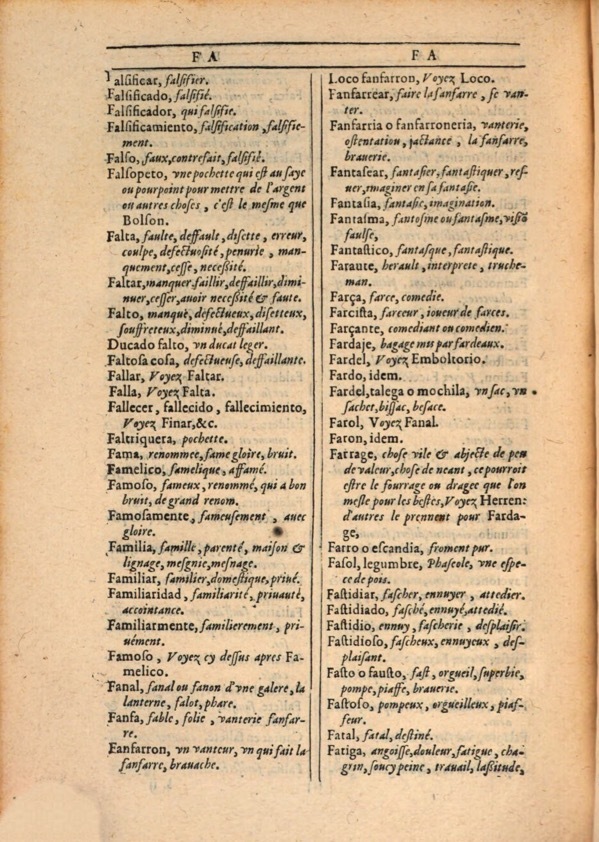 F A
Falsificar, falsifier.
Falsificado, falsifié.
Falsificador, qui falsifie.
Falsificamiento, falsification, falsifie-
ment.
Falso, faux, contrefait, falsifié.
Falsopeto, vne pochette qui est au saye
ou pourpoint pour mettre de l'argent
ou autres choses, c'est le mesme que
Bolson.
Falta, faulte, deffault, disette, erreur,
coulpe, defectuosité, penurie, man-
quement, cesse, necessité.
Faltar, manquer, faillir, deffaillir, dimi-
nuer, cesser, auoir necessité & faute.
Falto, manqué, defectueux, disetteux,
souffreteux, diminué, deffaillant.
Ducado falto, vn ducat leger.
Faltosa cosa, defectueuse, deffaillante.
Fallar, Voyez Faltar.
Falla, Voyez Falta.
Fallecer, fallecido, fallecimiento,
Voyez Finar, &c.
Faltriquera, pochette.
Fama, renommee, fame gloire, bruit.
Famelico, famelique, affamé.
Famoso, fameux, renommé, qui a bon
bruit, de grand renom.
Famosamente, fameusement, auec
gloire.
Familia, famille, parenté, maison &
lignage, mesgnie, mesnage.
Familiar, familier, domestique, priué.
Familiaridad, familiarité, priuauté,
accointance.
Familiarmente, familierement, pri-
uément.
Famoso, Voyez cy dessus apres Fa-
melico.
Fanal, fanal ou fanon d'vne galere, la
lanterne, falot, phare.
Fanfa, fable, folie, vanterie fanfar-
re.
Fanfarron, vn vanteur, vn qui fait la
fanfarre, brauache.
F A
Loco fanfarron, Voyez Loco.
Fanfarrear, faire la fanfarre, se van-
ter.
Fanfarria o fanfarroneria, vanterie,
ostentation, jactance, la fanfarre,
brauerie.
Fantasear, fantasier, fantastiquer, res-
uer, imaginer en sa fantasie.
Fantasia, fantasie, imagination.
Fantasma, fantosme ou fantasme, visiō
faulse,
Fantastico, fantasque, fantastique.
Faraute, herault, interprete, truche-
man.
Farça, farce, comedie.
Farcista, farceur, ioueur de farces.
Farçante, comediant ou comedien.
Fardaje, bagage mis par fardeaux.
Fardel, Voyez Emboltorio.
Fardo, idem.
Fardel, talega o mochila, vn sac, vn
sachet, bissac, besace.
Farol, Voyez Fanal.
Faron, idem.
Farrage, chose vile & abjecte de peu
de valeur, chose de neant, ce pourroit
estre le fourrage ou dragee que l'on
mesle pour les bestes, Voyez Herren:
d'autres le prennent pour Farda-
ge,
Farro o escandia, froment pur.
Fasol, legumbre, Phaseole, vne espe-
ce de pois.
Fastidiar, fascher, ennuyer, attedier.
Fastidiado, fasché, ennuyé, attedié.
Fastidio, ennuy, fascherie, desplaisir.
Fastidioso, fascheux, ennuyeux, des-
plaisant.
Fasto o fausto, fast, orgueil, superbie,
pompe, piaffe, brauerie.
Fastoso, pompeux, orgueilleux, piaf-
feur.
Fatal, fatal, destiné.
Fatiga, angoisse, douleur, fatigue, cha-
grin, soucy peine, trauail, lassitude,